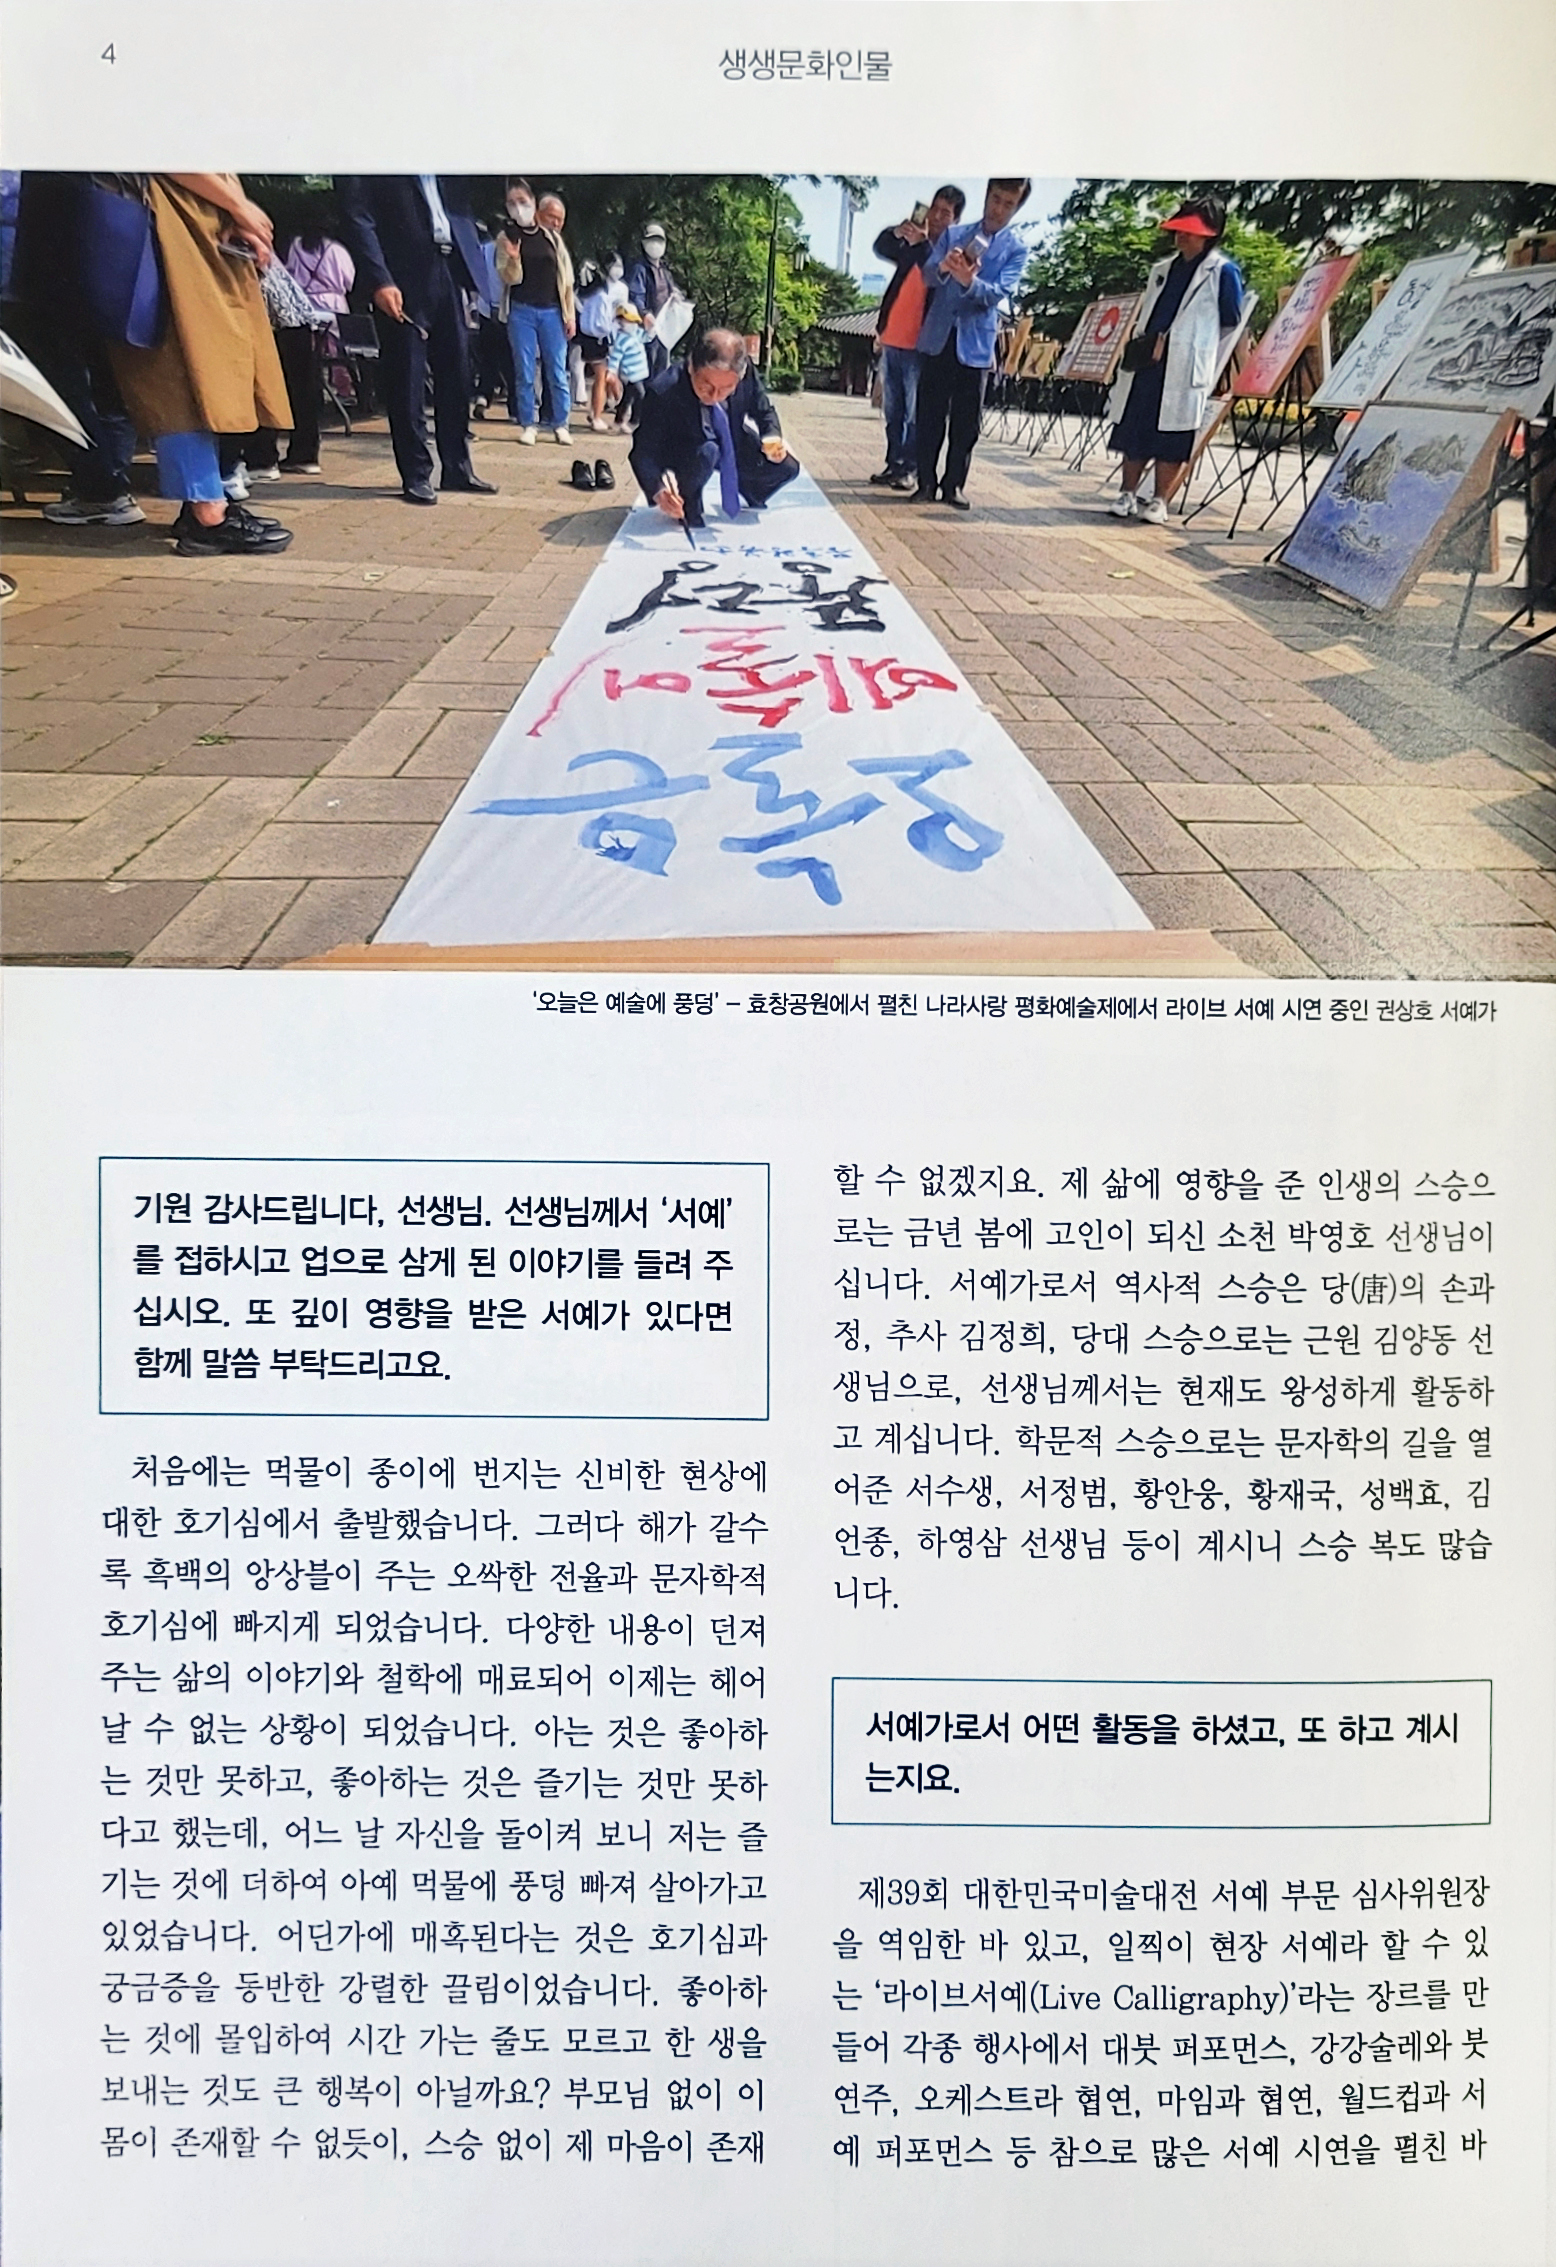 4
생생문화인물
오늘은
예술에
풍덩
'오늘은 예술에 풍덩' – 효창공원에서 펼친 나라사랑 평화예술제에서 라이브 서예 시연 중인 권상호 서예가
기원 감사드립니다, 선생님. 선생님께서 '서예'
를 접하시고 업으로 삼게 된 이야기를 들려 주
십시오. 또 깊이 영향을 받은 서예가 있다면
함께 말씀 부탁드리고요.
처음에는 먹물이 종이에 번지는 신비한 현상에
대한 호기심에서 출발했습니다. 그러다 해가 갈수
록 흑백의 앙상블이 주는 오싹한 전율과 문자학적
호기심에 빠지게 되었습니다. 다양한 내용이 던져
주는 삶의 이야기와 철학에 매료되어 이제는 헤어
날 수 없는 상황이 되었습니다. 아는 것은 좋아하
는 것만 못하고, 좋아하는 것은 즐기는 것만 못하
다고 했는데, 어느 날 자신을 돌이켜 보니 저는 즐
기는 것에 더하여 아예 먹물에 풍덩 빠져 살아가고
있었습니다. 어딘가에 매혹된다는 것은 호기심과
궁금증을 동반한 강렬한 끌림이었습니다. 좋아하
는 것에 몰입하여 시간 가는 줄도 모르고 한 생을
보내는 것도 큰 행복이 아닐까요? 부모님 없이 이
몸이 존재할 수 없듯이, 스승 없이 제 마음이 존재
할 수 없겠지요. 제 삶에 영향을 준 인생의 스승으
로는 금년 봄에 고인이 되신 소천 박영호 선생님이
십니다. 서예가로서 역사적 스승은 당(唐)의 손과
정, 추사 김정희, 당대 스승으로는 근원 김양동 선
생님으로, 선생님께서는 현재도 왕성하게 활동하
고 계십니다. 학문적 스승으로는 문자학의 길을 열
어준 서수생, 서정범, 황안웅, 황재국, 성백효, 김
언종, 하영삼 선생님 등이 계시니 스승 복도 많습
니다.
서예가로서 어떤 활동을 하셨고, 또 하고 계시
는지요.
제39회 대한민국미술대전 서예 부문 심사위원장
을 역임한 바 있고, 일찍이 현장 서예라 할 수 있
는 '라이브서예(Live Calligraphy)'라는 장르를 만
들어 각종 행사에서 대붓 퍼포먼스, 강강술레와 붓
연주, 오케스트라 협연, 마임과 협연, 월드컵과 서
예 퍼포먼스 등 참으로 많은 서예 시연을 펼친 바